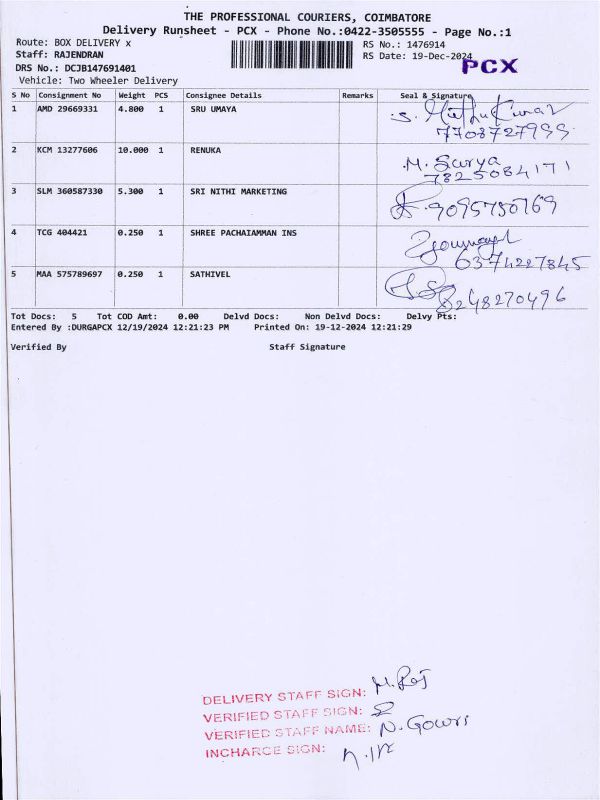 THE PROFESSIONAL COURIERS, COIMBATORE
Delivery Runsheet - PCX - Phone No.:0422-3505555 - Page No.:1
Route: BOX DELIVERY x RS No.: 1476914
Staff: RAJENDRAN RS Date: 19-Dec-2024
DRS No.: DCJB147691401 PCX
Vehicle: Two Wheeler Delivery
S No Consignment No Weight PCS Consignee Details Remarks Seal & Signature
1 AMD 29669331 4.800 1 SRU UMAYA S. Muthu Kumar
7708727999
2 KCM 13277606 10.000 1 RENUKA M. Surya
7825084171
3 SLM 360587330 5.300 1 SRI NITHI MARKETING 9095750769
4 TCG 404421 0.250 1 SHREE PACHAIAMMAN INS
6374227845
5 MAA 575789697 0.250 1 SATHIVEL
8248270496
Tot Docs: 5 Tot COD Amt: 0.00 Delvd Docs: Non Delvd Docs: Delvy Pts:
Entered By :DURGAPCX 12/19/2024 12:21:23 PM Printed On: 19-12-2024 12:21:29
Verified By Staff Signature
DELIVERY STAFF SIGN: M. Raj
VERIFIED STAFF SIGN:
VERIFIED STAFF NAME: N. Gowri
INCHARGE SIGN: